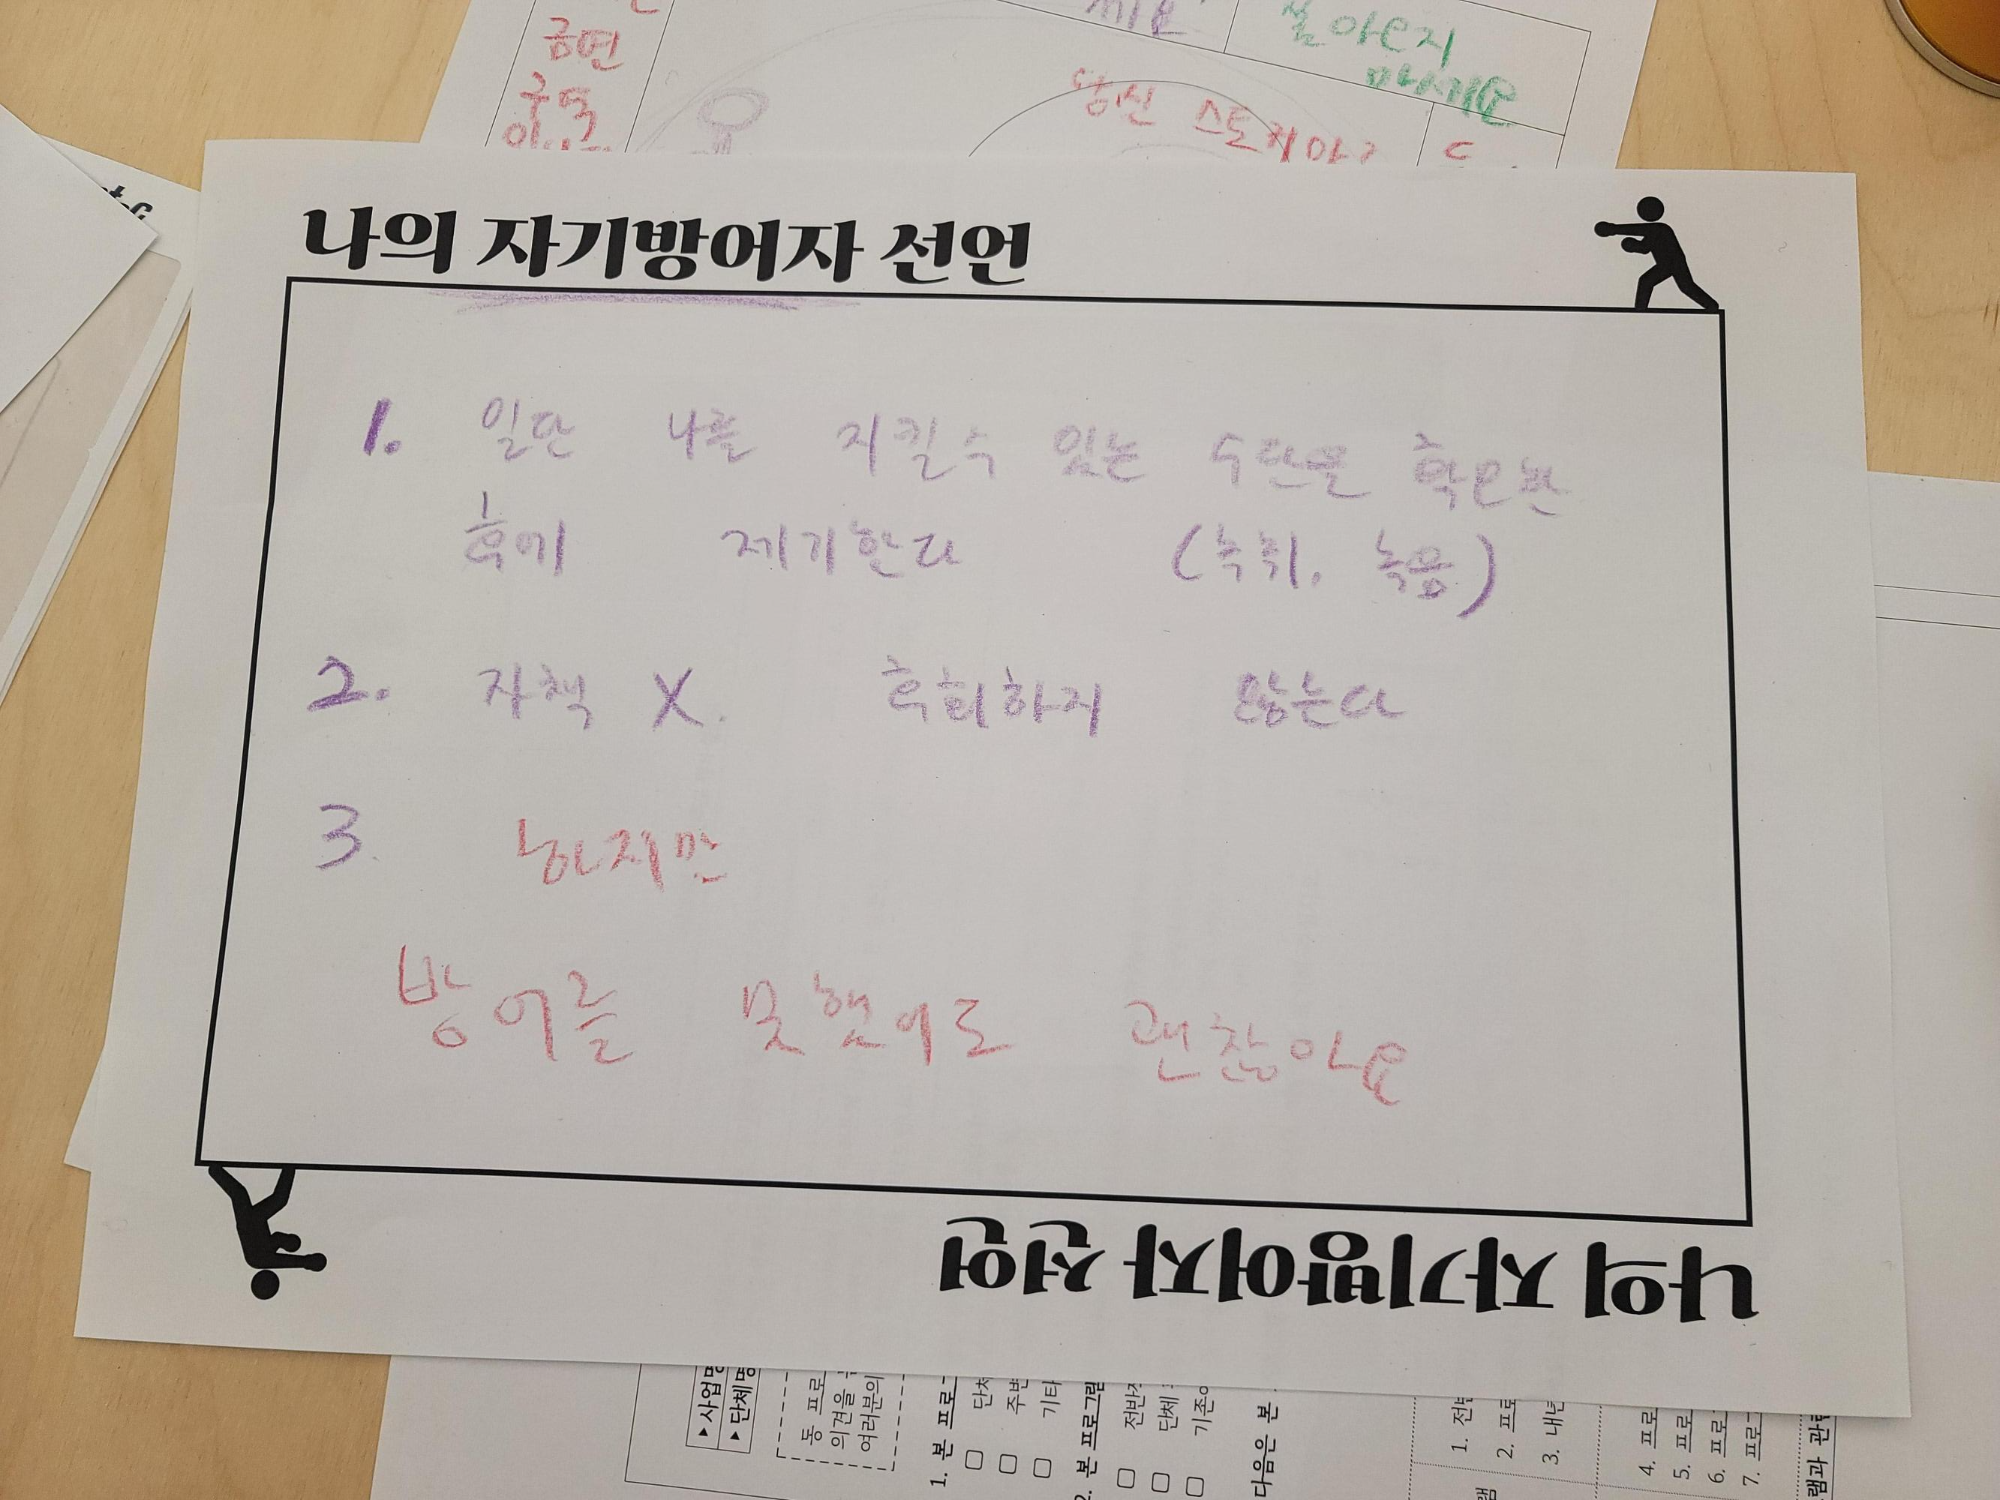 금연
세요
당신 스토커
나의 자기방어자 선언
1. 일단 나를 지킬수 있는 수단을 확보한
후에 제기한다 (녹취, 녹음)
2. 자책 X. 후회하지 않는다
3 하지만
방어를 못했어도 괜찮아요
나의 자기방어자 선언
▶사업명
▶단체명
동 프로
의견을
여러분의
1. 본 프로그
□ 단체
□ 주변
□ 기타
2. 본 프로그램
□ 전반적
□ 단체
□ 기존
다음은 본
1. 전반
2. 프로
3. 내년
4. 프로
5. 프로
6. 프로
7. 프로그
램과 관련